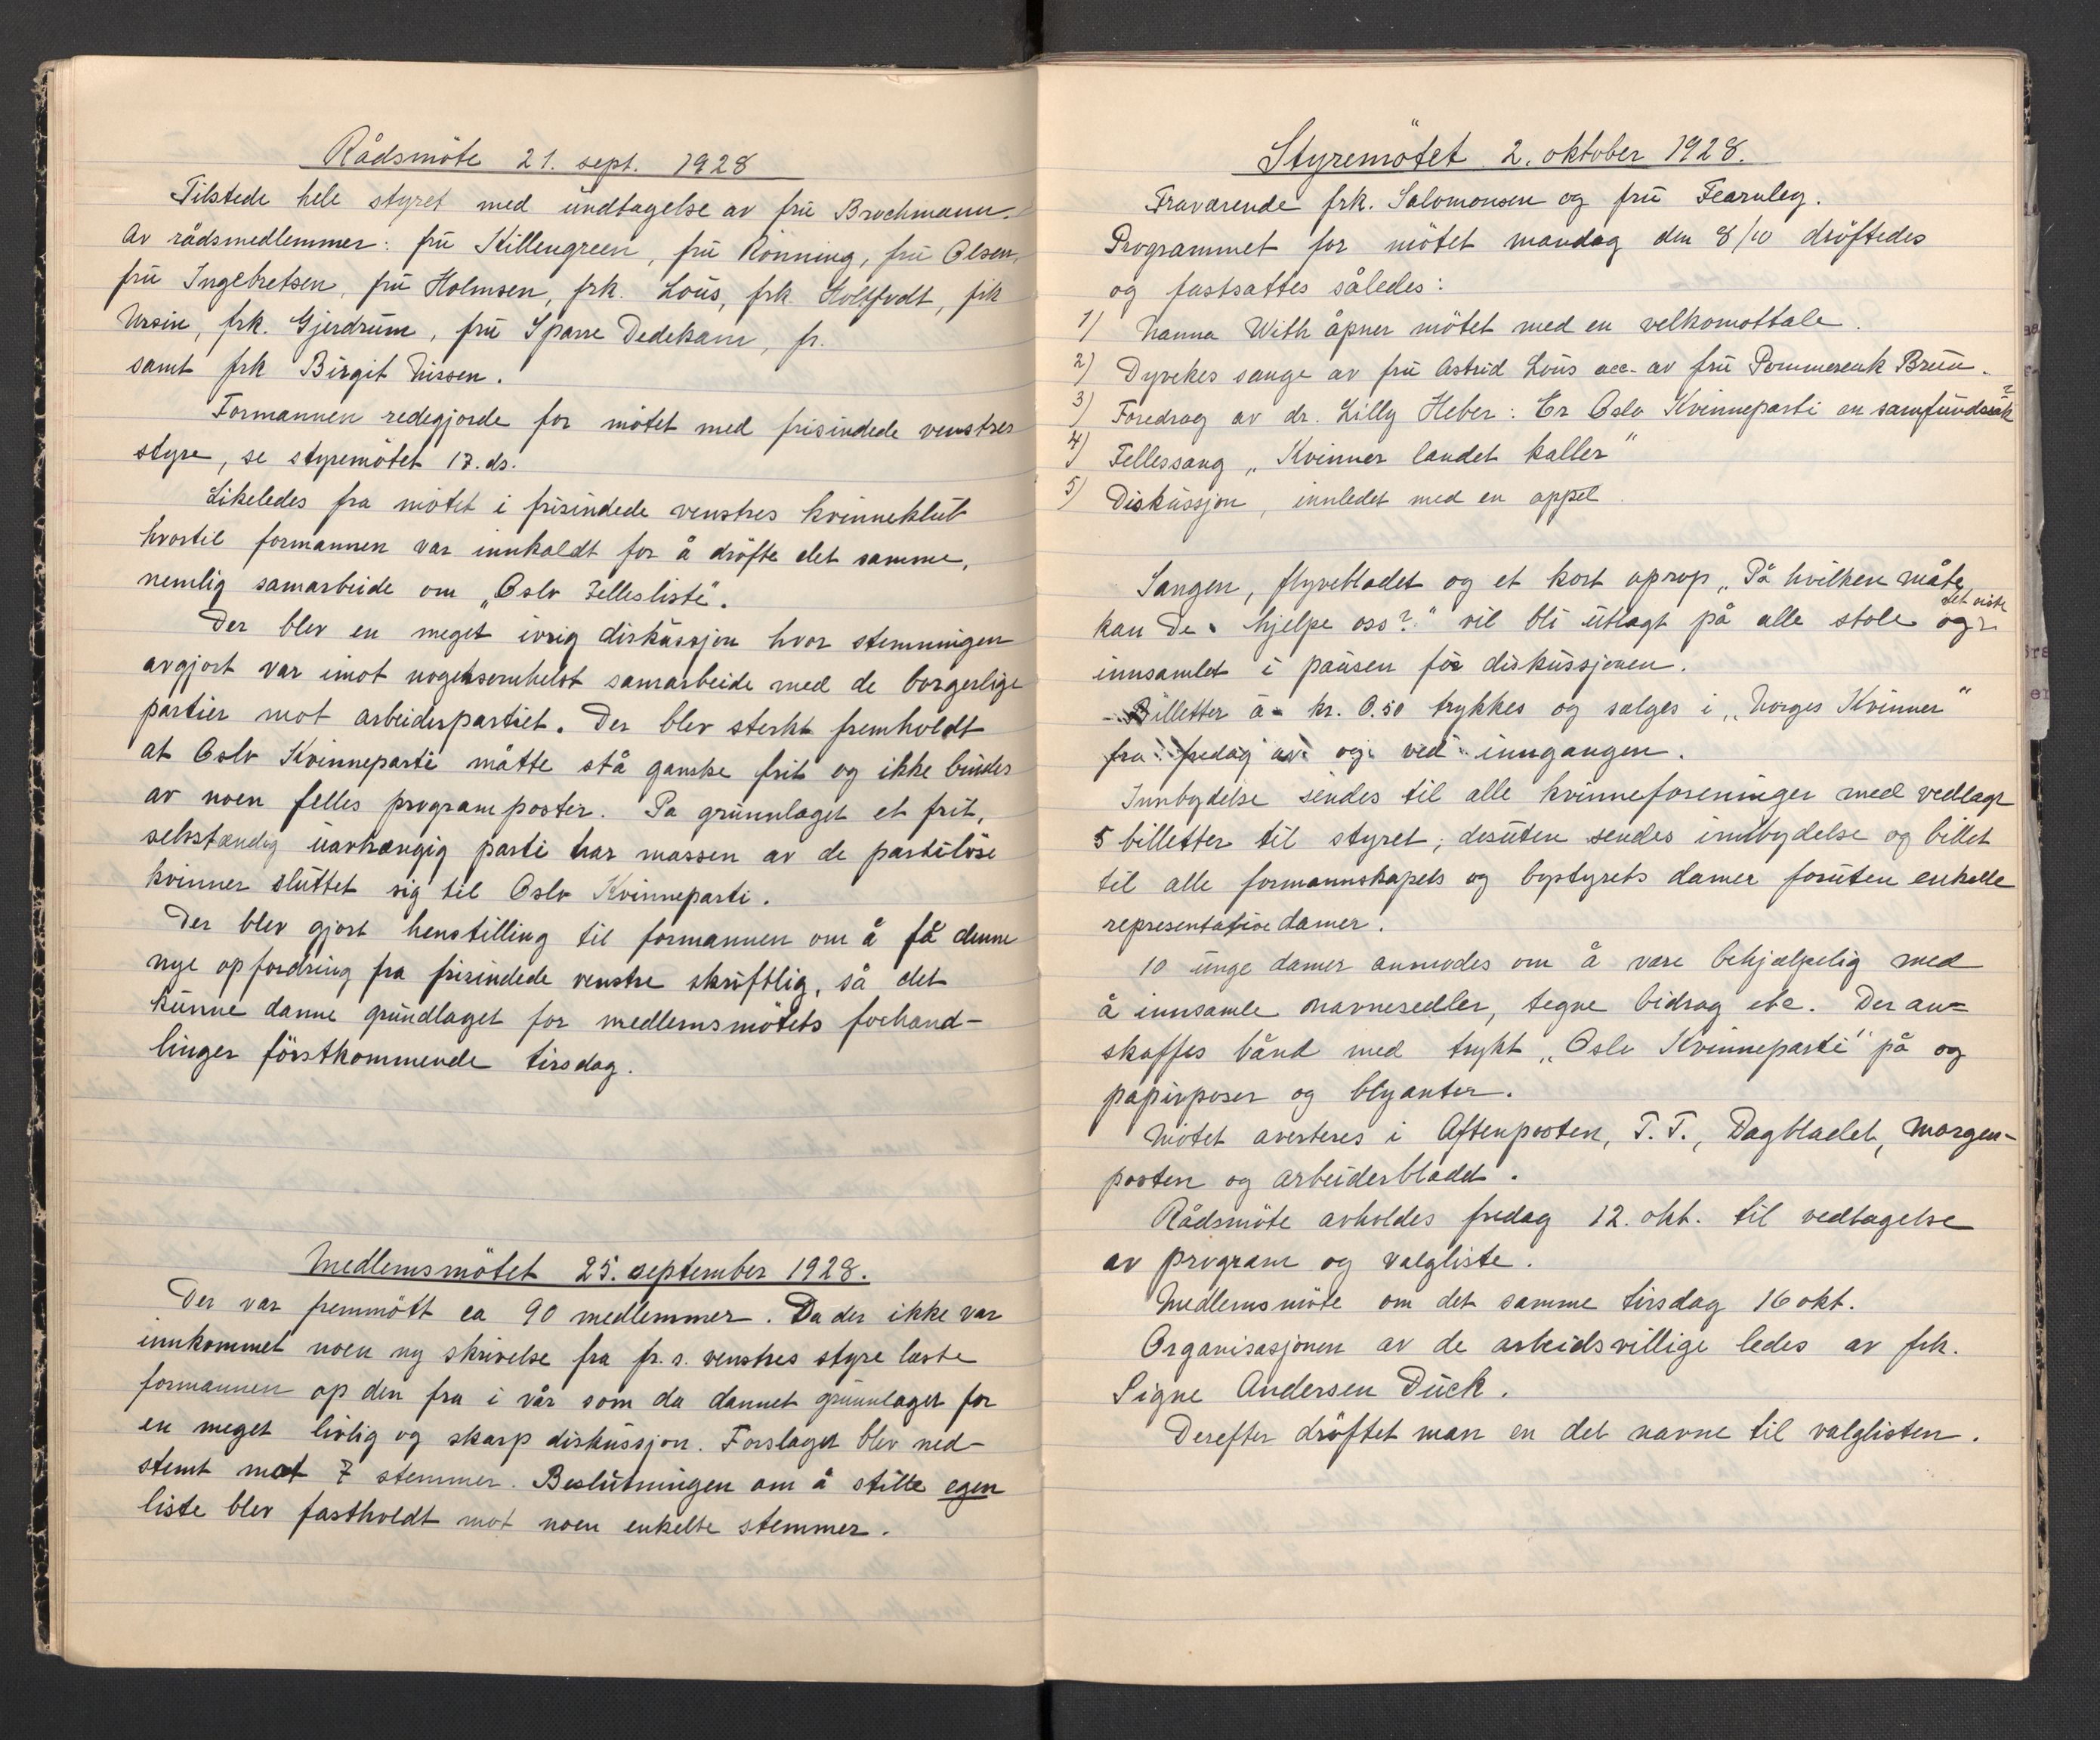 Rådsmöte 21. sept. 1928
Tilstede hele styret med undtagelse av fru Brochmann.
Av rådsmedlemmer: fru Killengreen, fru Rönning, fru Olsen,
fru Ingebretsen, fru Holmsen, frk. Lous, frk Holtfodt, frk
Ursin, frk. Gjerdrum, fru Sparre Dedekam, fr.
samt frk Birgit Nissen.
Formannen redegjorde for mötet med frisindede venstres
styre, se styremötet 17. ds.
Likeledes fra mötet i frisindede venstres kvinneklub
hvortil formannen var innkaldt for å dröfte det samme,
nemlig samarbeide om „Oslo Fellesliste".
Der blev en meget ivrig diskussjon hvor stemningen
avgjort var imot nogetsomhelst samarbeide med de borgerlige
partier mot arbeiderpartiet. Der blev sterkt fremholdt
at Oslo Kvinneparti måtte stå ganske frit og ikke bindes
av noen felles programposter. Pa grunnlaget et frit,
selvstændig uavhængig parti har massen av de partilöse
kvinner sluttet sig til Oslo Kvinneparti.
Der blev gjort henstilling til formannen om å få denne
nye opfordring fra frisindede venstre skriftlig, så det
kunne danne grundlaget for medlemsmötets forhand-
linger förstkommende tirsdag.
Medlemsmötet 25. september 1928.
Der var fremmött ca 90 medlemmer. Da der ikke var
innkommet noen ny skrivelse fra fr. s. venstres styre læste
formannen op den fra i vår som da dannet grunnlaget for
en meget livlig og skarp diskussjon. Forslaget blev ned-
stemt mot 7 stemmer. Beslutningen om å stille egen
liste blev fastholdt mot noen enkelte stemmer.
Styremötet 2. oktober 1928.
Fraværende frk. Salomonsen og fru Fearnley.
Programmet for mötet mandag den 8/10 dröftedes
og fastsattes således:
1) Nanna With åpner mötet med en velkomsttale.
2) Dyvekes sange av fru Astrid Lous acc. av fru Pommerenk Bruu.
3) Foredrag av dr. Lilly Heber: Er Oslo Kvinneparti en samfundssak?
4) Fellessang „Kvinner landet kaller"
5) Diskussjon, innledet med en appel.
Sangen, flyvebladet og et kort oprop „På hvilken måte
kan De hjelpe oss?" vil bli utlagt på alle stole og det siste
innsamlet i pausen för diskussjonen.
Billetter à kr. 0.50 trykkes og sælges i „Norges Kvinner"
fra fredag av og ved inngangen.
Innbydelse sendes til alle kvinneforeninger med vedlagt
5 billetter til styret; desuten sendes innbydelse og billet
til alle formannskapets og bystyrets damer foruten enkelte
representative damer.
10 unge damer anmodes om å være behjælpelig med
å innsamle navnesedler, tegne bidrag etc. Der an=
skaffes bånd med trykt „Oslo Kvinneparti" på og
papirposer og blyanter.
Mötet averteres i Aftenposten, T. T., Dagbladet, Morgen-
posten og Arbeiderbladet.
Rådsmöte avholdes fredag 12. okt. til vedtagelse
av program og valgliste.
Medlemsmöte om det samme tirsdag 16 okt.
Organisasjonen av de arbeidsvillige ledes av frk.
Signe Andersen Duck.
Derefter dröftet man en del navne til valglisten.